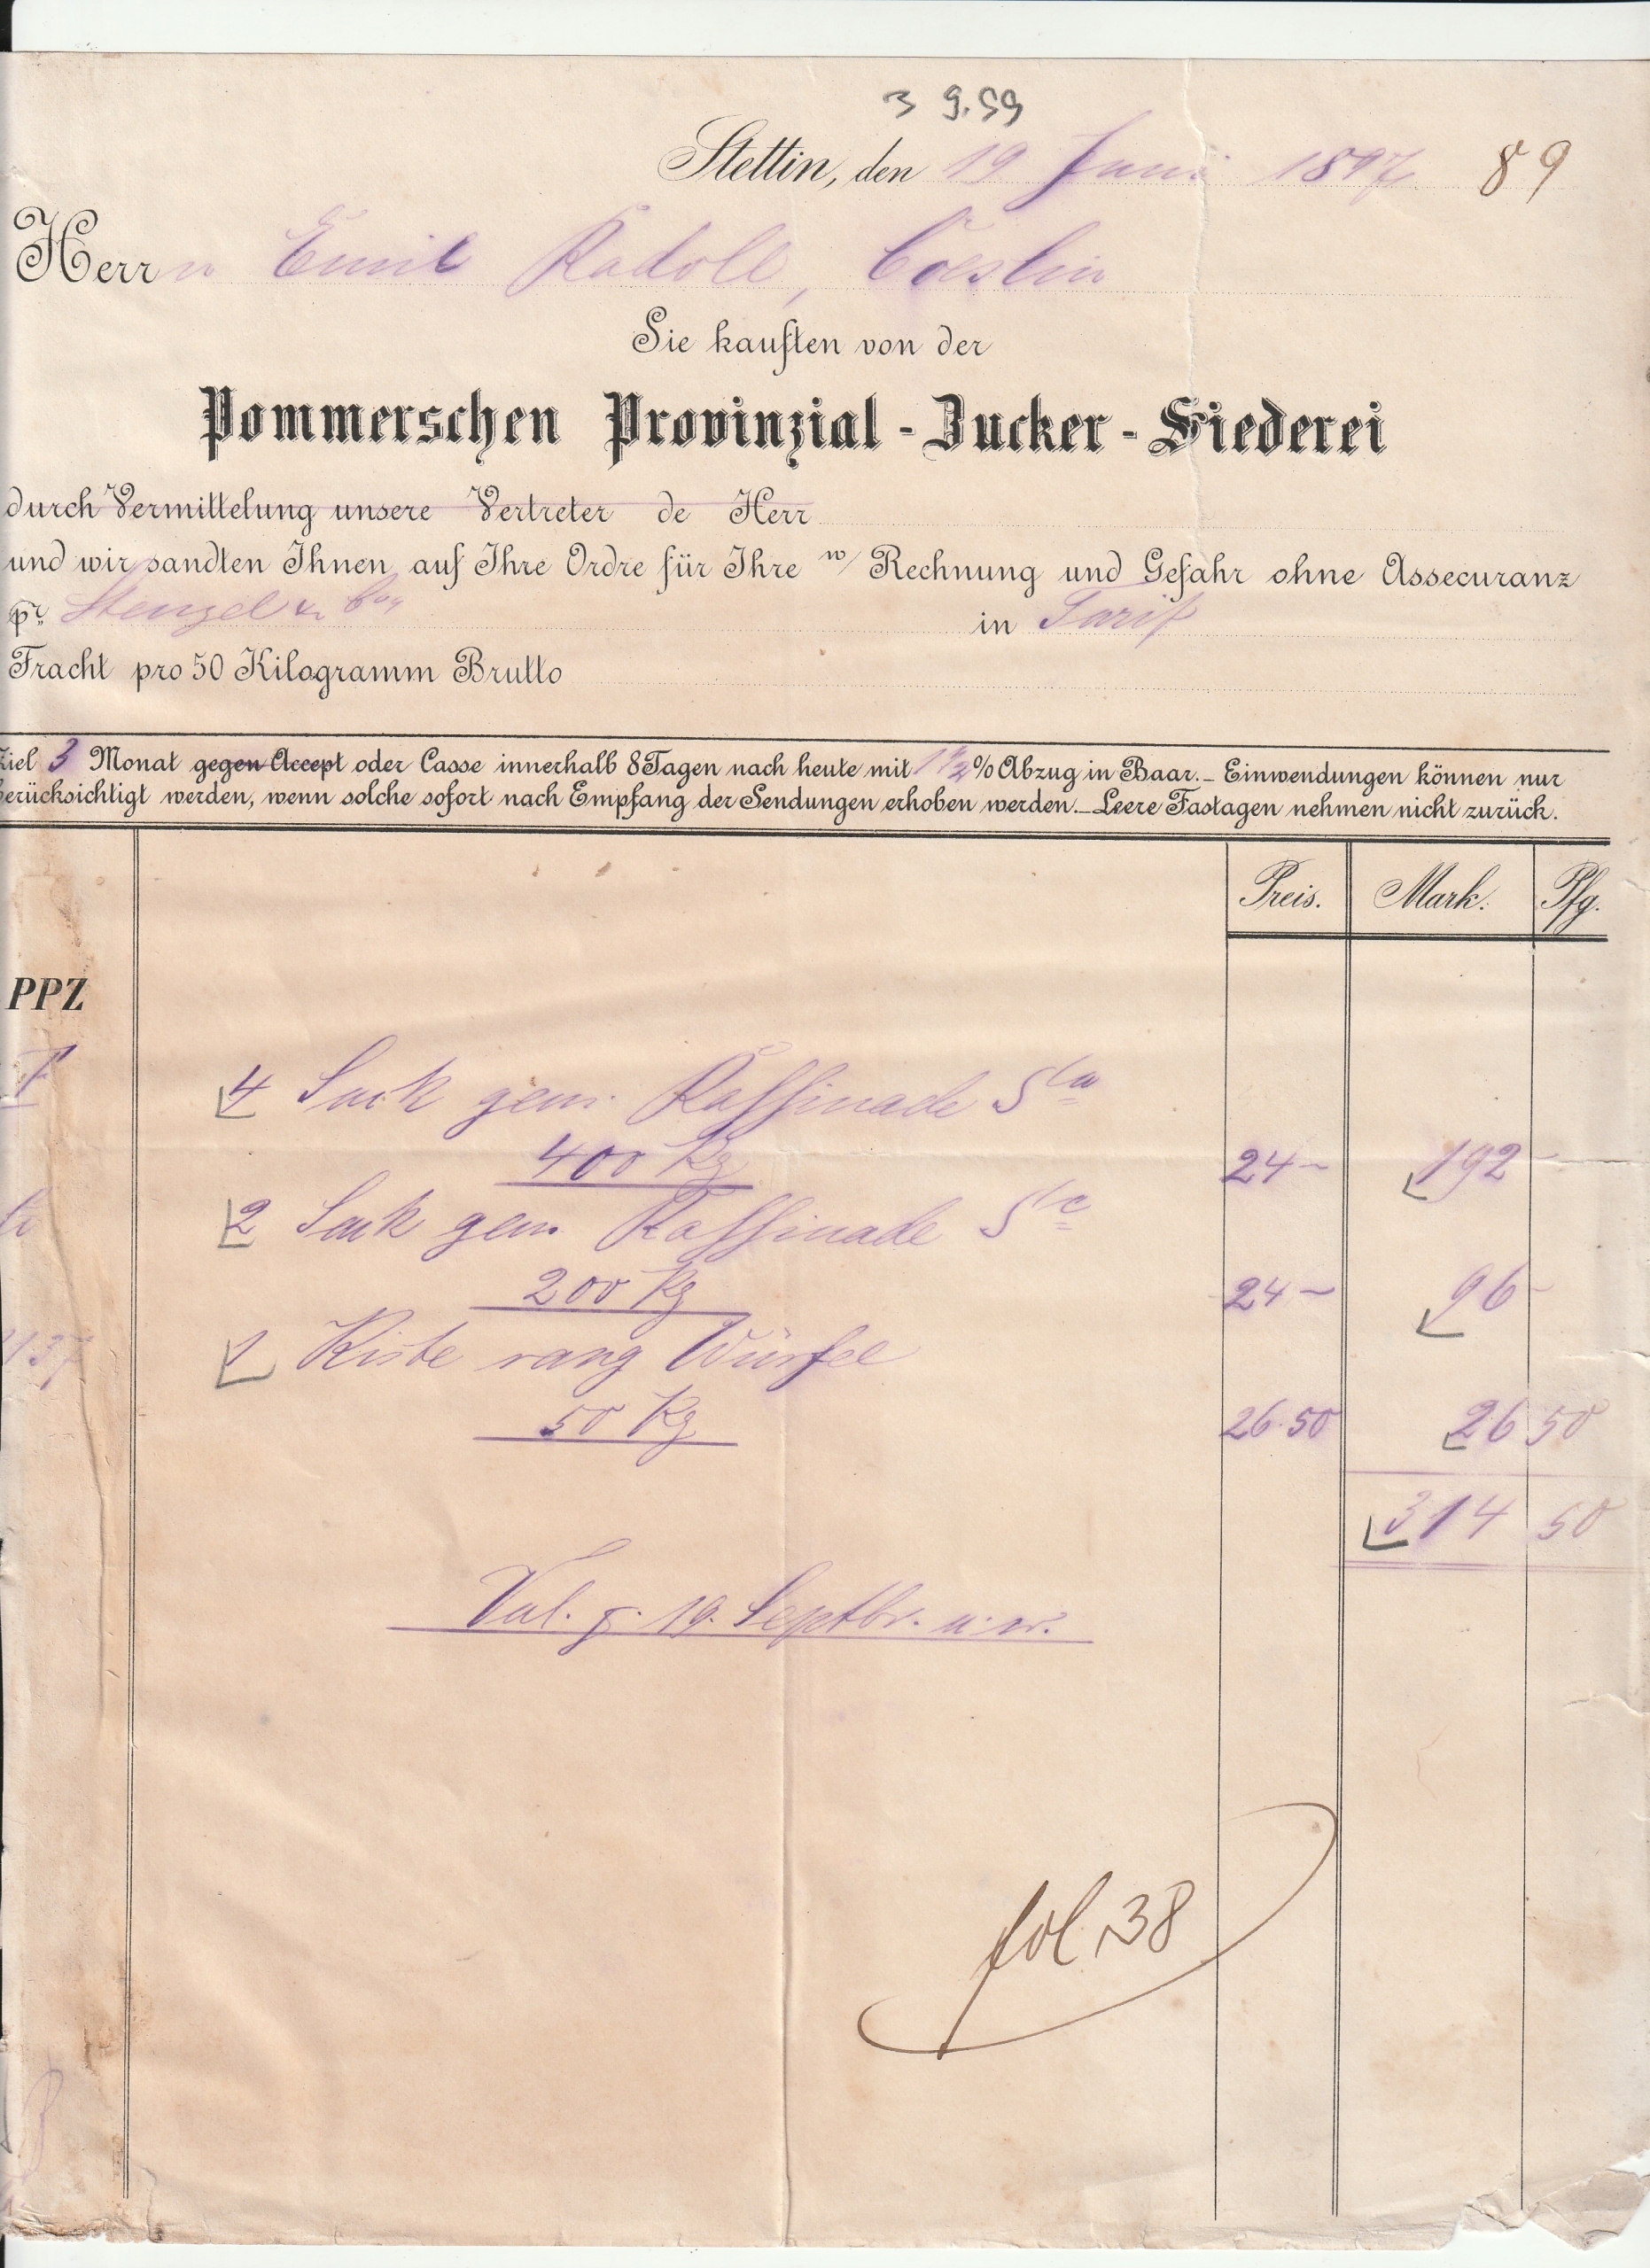 3 9.59
Stettin, den 19 Juni 1897. 89
Herrn Emil Radoll, Cöslin
Sie kauften von der
Pommerschen Provinzial-Zucker-Siederei
durch Vermittelung unsere Vertreter de Herr
und wir sandten Ihnen auf Ihre Ordre für Ihre w/ Rechnung und Gefahr ohne Assecuranz
pr. Stenzel & Co, in Tarif
Fracht pro 50 Kilogramm Brutto
Ziel 3 Monat gegen Accept oder Casse innerhalb 8 Tagen nach heute mit 1 1/2 % Abzug in Baar. – Einwendungen können nur
berücksichtigt werden, wenn solche sofort nach Empfang der Sendungen erhoben werden. – Leere Fastagen nehmen nicht zurück.
Preis. Mark. Pfg.
PPZ
4 Sack gem. Raffinade
400 Kg 24 – 192 –
2 Sack gem. Raffinade
200 Kg 24 – 96 –
137 1 Kiste rang Würfel
50 Kg 26.50 26 50
314 50
Val. p. 19. Septbr. a. cr.
fol. 38